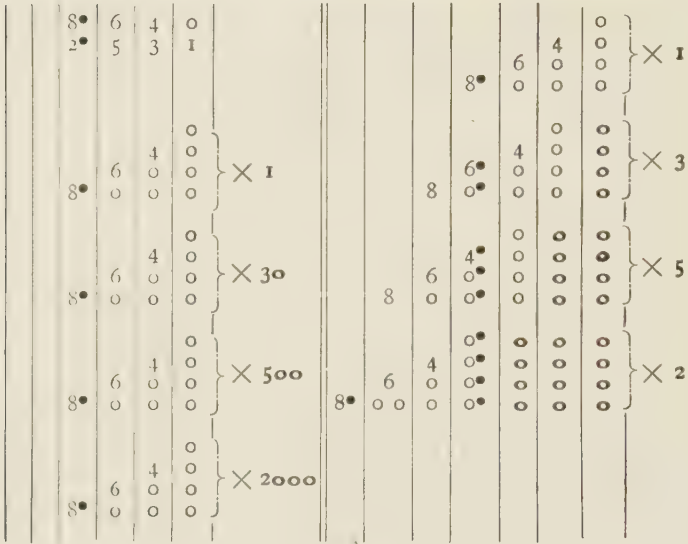 8• 6 4 0
2• 5 3 1
0
4 0
6 0 0 × 1
8• 0 0 0
0
4 0
6 0 0 × 30
8• 0 0 0
0
4 0
6 0 0 × 500
8• 0 0 0
0
4 0
6 0 0 × 2000
8• 0 0 0
0
4 0
6 0 0 × 1
8• 0 0 0
0 0
4 0 0
6• 0 0 0 × 3
8 0• 0 0 0
0 0 0
4• 0 0 0
6 0• 0 0 0 × 5
8 0 0• 0 0 0
0• 0 0 0
4 0• 0 0 0
6 0 0• 0 0 0 × 2
8• 0 0 0 0• 0 0 0